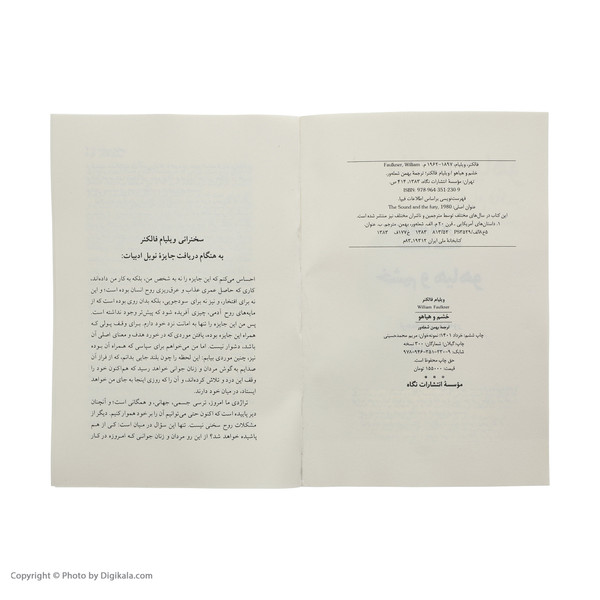 فاکنر، ویلیام، ۱۸۹۷-۱۹۶۲ م. Faulkner, William
خشم و هیاهو / ویلیام فاکنر؛ ترجمهٔ بهمن شعله‌ور.
تهران: مؤسسهٔ انتشارات نگاه، ۱۳۸۳، ۴۱۴ ص.
ISBN: 978-964-351-230-9
فهرست‌نویسی براساس اطلاعات فیپا.
عنوان اصلی: The Sound and the fury, 1980
این کتاب در سال‌های مختلف توسط مترجمین و ناشران مختلف نیز منتشر شده است.
۱. داستان‌های آمریکایی ـ قرن ۲۰ م. الف. شعله‌ور، بهمن، مترجم. ب. عنوان.
۱۳۸۳ ۸۱۳/۵۲
کتابخانهٔ ملی ایران
ویلیام فالکنر
William Faulkner
خشم و هیاهو
ترجمهٔ بهمن شعله‌ور
چاپ ششم: خرداد ۱۴۰۱؛ نمونه‌خوان: مریم محمدحسینی
چاپ: گیلان؛ شمارگان: ۳۰۰ نسخه
شابک: ۹-۲۳۰-۳۵۱-۹۶۴-۹۷۸
حق چاپ محفوظ است.
قیمت: ۱۵۵۰۰۰ تومان
* * *
مؤسسهٔ انتشارات نگاه
سخنرانی ویلیام فالکنر
به هنگام دریافت جایزهٔ نوبل ادبیات:
احساس می‌کنم که این جایزه را نه به شخص من، بلکه به کار من داده‌اند،
کاری که حاصل عمری عذاب و عرق‌ریزی روح انسان بوده است؛ و این
نه برای افتخار، و نیز نه برای سودجویی، بلکه بدان روی بوده است که از
مایه‌های روح آدمی، چیزی آفریده شود که پیش‌تر وجود نداشته است.
پس من این جایزه را تنها به امانت نزد خود دارم. برای وقف پولی کـه
همراه این جایزه بوده، یافتن موردی که در خورد هدف و معنای اصلی آن
باشد، دشوار نیست. اما من می‌خواهم برای سپاسی که همراه آن بـوده
نیز، چنین موردی بیابم: این لحظه را چون بلند جایی بدانم، که از فراز آن
صدایم به گوش مردان و زنان جوانی خواهد رسید که هم‌اکنون خود را
وقف این درد و تلاش کرده‌اند، و آن را که روزی اینجا به جای من خواهد
ایستاد، در میان خود دارند.
تراژدی ما امروز، ترسی جسمی، جهانی، و همگانی است؛ و آنچنان
دیرپاییده است که اکنون حتی می‌توانیم آن را بر خود هموار کنیم. دیگر از
مشکلات روح سخنی نیست. تنها این سؤال در میان است: کـی از هـم
پاشیده خواهد شد؟ از این رو مردان و زنان جوانـی کـه امـروزه در کـار
Copyright © Photo by Digikala.com